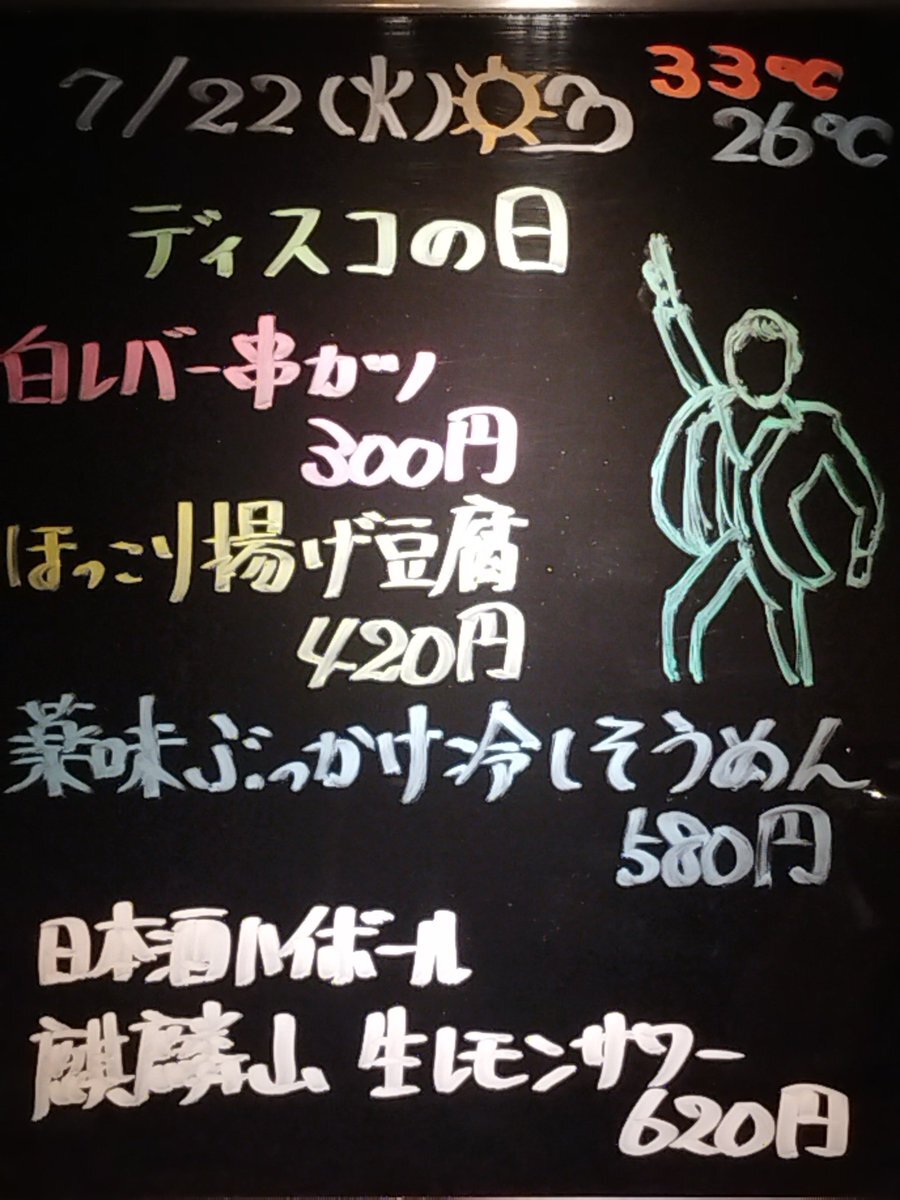 7/22(水)
33℃
26℃
ディスコの日
白レバー串カツ
300円
ほっこり揚げ豆腐
420円
薬味ぶっかけ冷しそうめん
580円
日本酒ハイボール
麒麟山 生レモンサワー
620円